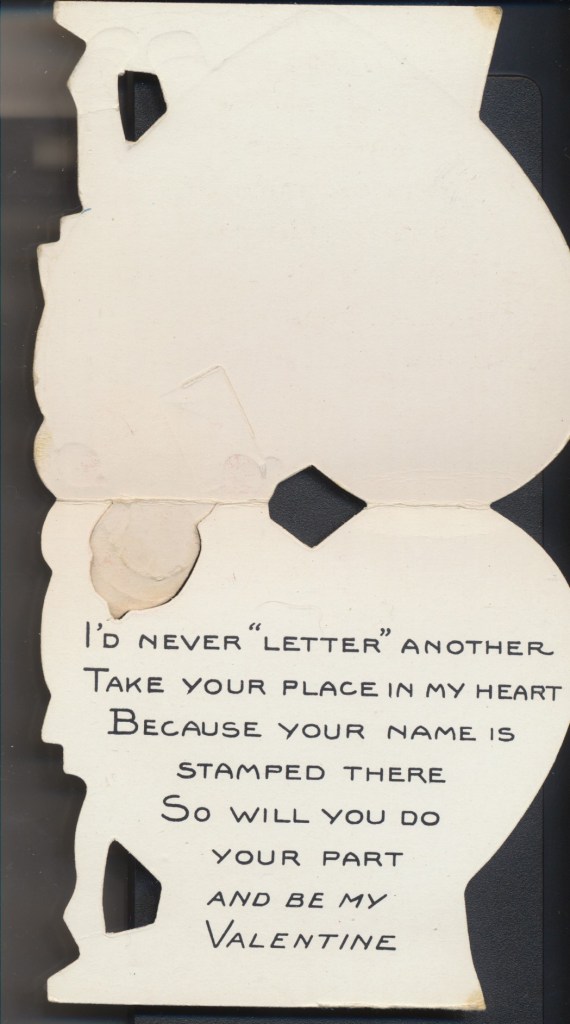 I'D NEVER "LETTER" ANOTHER
TAKE YOUR PLACE IN MY HEART
BECAUSE YOUR NAME IS
STAMPED THERE
SO WILL YOU DO
YOUR PART
AND BE MY
VALENTINE